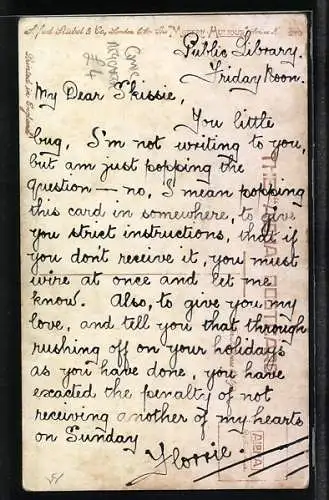 Public Library.
Friday Noon.
My Dear Skissie,
You little
bug, I'm not writing to you,
but am just popping the
question — no, I mean popping
this card in somewhere, to give
you strict instructions, that if
you don't receive it, you must
wire at once and let me
know. Also, to give you my
love, and tell you that through
rushing off on your holidays
as you have done, you have
exacted the penalty of not
receiving another of my hearts
on Sunday
Florrie.
Printed in England